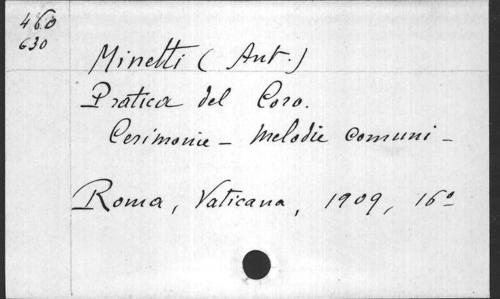 460
630
Minetti (Ant.)
Pratica del Coro.
Cerimonie - Melodie comuni -
Roma, Vaticana, 1909, 16º